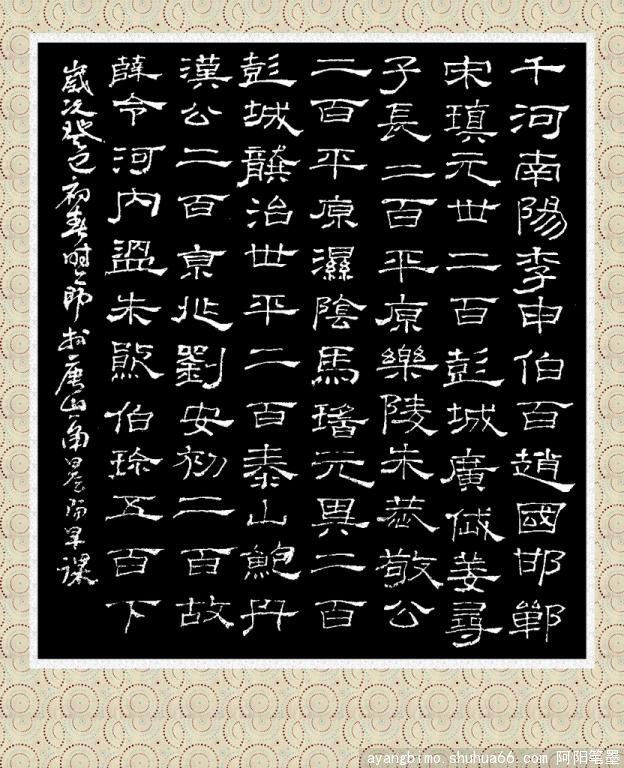 千河南陽李申伯百趙國邯鄲
宋瑱元世二百彭城廣戚姜尋
子長二百平原樂陵朱恭敬公
二百平原濕陰馬瑤元異二百
彭城龔治世平二百泰山鮑丹
漢公二百京兆劉安初二百故
薛令河內溫朱熊伯珍五百下
歲次癸巳初春时節於唐山南陽早課
ayangbimo.shuhua66.com 阿阳笔墨